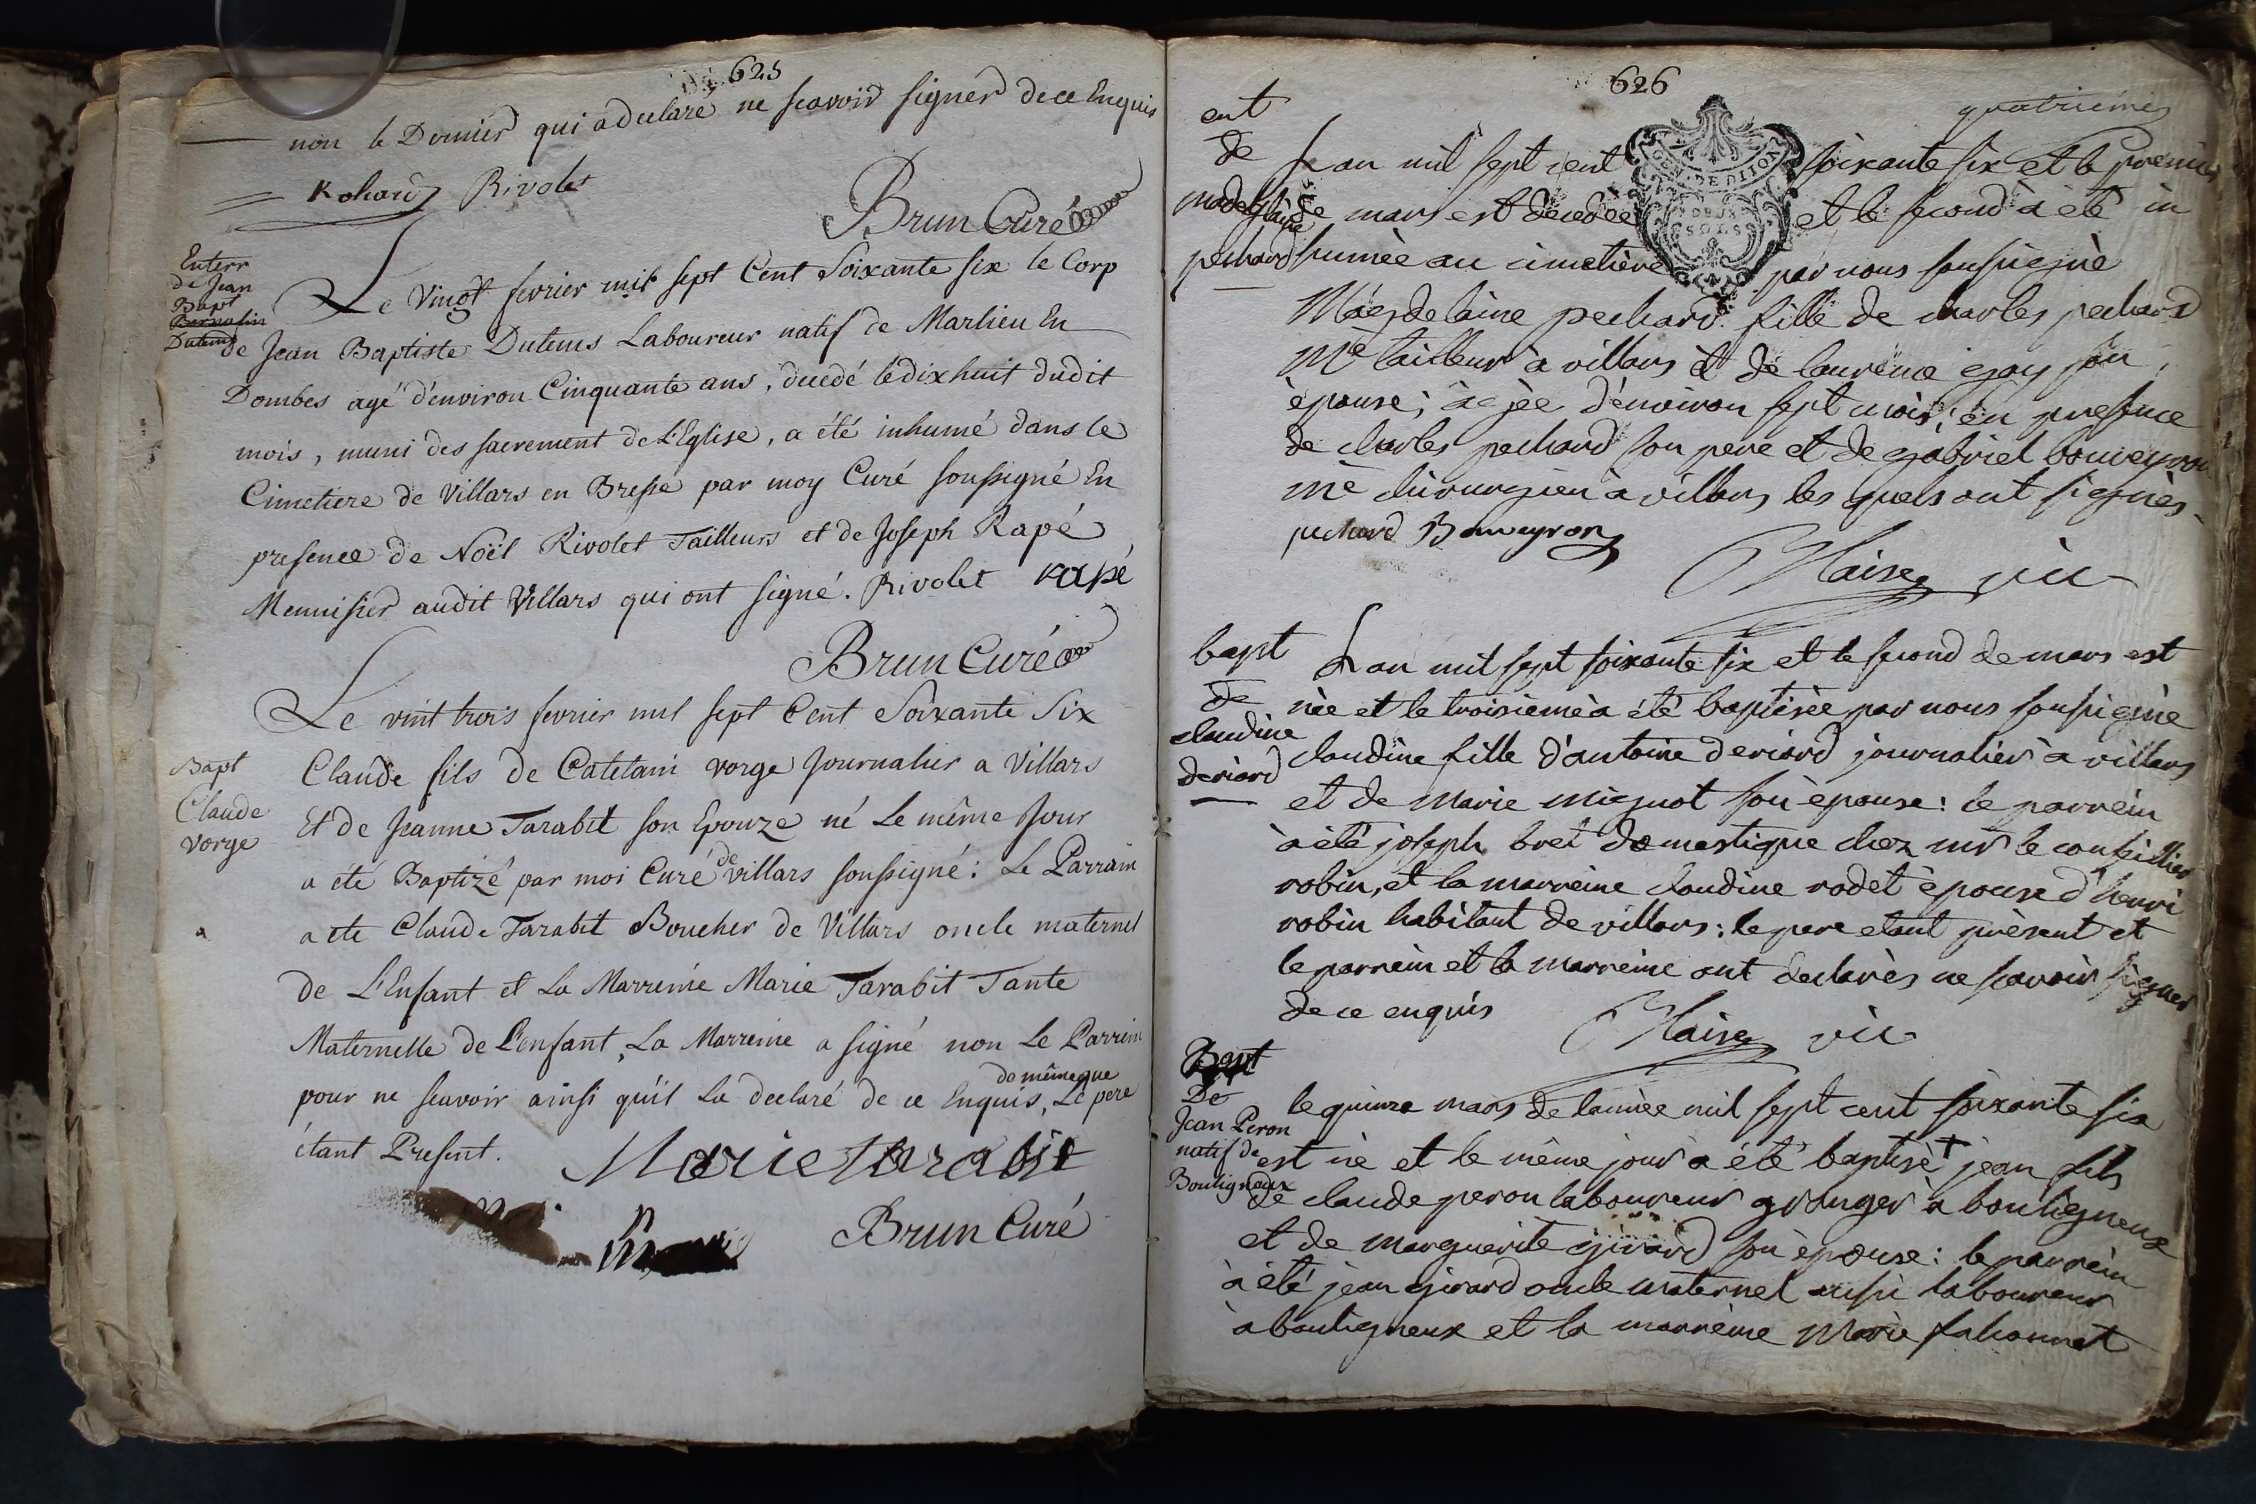 625
non le Dernier qui a declaré ne scavoir signer de ce Enquis
Rivolet
Brun Curé
Enterr
de Jean
Bapt
Dutems
Le Vingt fevrier mil sept Cent Soixante six le Corp
de Jean Baptiste Dutems Laboureur natif de Marlieu En
Dombes agé d'environ Cinquante ans, decedé le dix huit dudit
mois, muni des sacrement de L'Eglise, a été inhumé dans le
Cimetiere de Villars en Bresse par moy Curé soussigné En
presence de Noël Rivolet Tailleurs et de Joseph Rapé
Menuisier audit Villars qui ont signé. Rivolet rapé
Brun Curé
Bapt
Claude
vorge
Le vint trois fevrier mil sept Cent Soixante Six
Claude fils de Catelain vorge Journalier a Villars
Et de Jeanne Tarabit son Epouze né Le même Jour
a été Baptizé par moi Curé de villars soussigné: Le Parrain
a ete Claude Tarabit Boucher de Villars oncle maternel
de L'Enfant et La Marreine Marie Tarabit Tante
Maternelle de L'enfant, La Marreine a signé non Le Parrein
pour ne scavoir ainsi qu'il La declaré de ce Enquis, de même que Le pere
étant Present.
Marie tarabit
Brun Curé
626
quatrieme
GEN. DE DIJON
ent
de
magdelaine
pechard
Lan mil sept cent soixante six et le premier
de mars est decedèe et le second à été in
humèe au cimetière par nous soussignè
Magdelaine pechard fille de charles pechard
Me tailleur à villars et de laurence gay son
èpouse, àgèe d'environ sept mois, en presence
de charles pechard son pere et de gabriel bouveyron
me chirurgien à villars les quels ont signès.
pechard Bouveyron
Maire vic
bapt
de
claudine
deriard
Lan mil sept soixante six et le second de mars est
nèe et le troisieme à été baptisèe par nous soussignè
claudine fille d'antoine deriard journalier à villars
et de marie mignot son èpouse: le parrein
à été joseph bret domestique chez mr le conseiller
robin, et la marreine claudine rodet èpouse d'henri
robin habitant de villars: le pere etant prèsent et
le parrein et la marreine ont declarès ne scavoir signer
de ce enquis
Maire vic
Bapt
De
Jean Peron
natif de
Bouligneux
le quinze mars de lannèe mil sept cent soixante six
est nè et le même jour a été baptisè + jean fils
de claude peron laboureur granger à bouligneux
et de marguerite girard son èpouse: le parrein
à été jean girard oncle maternel aussi laboureur
à bouligneux et la marreine Marie falconnet